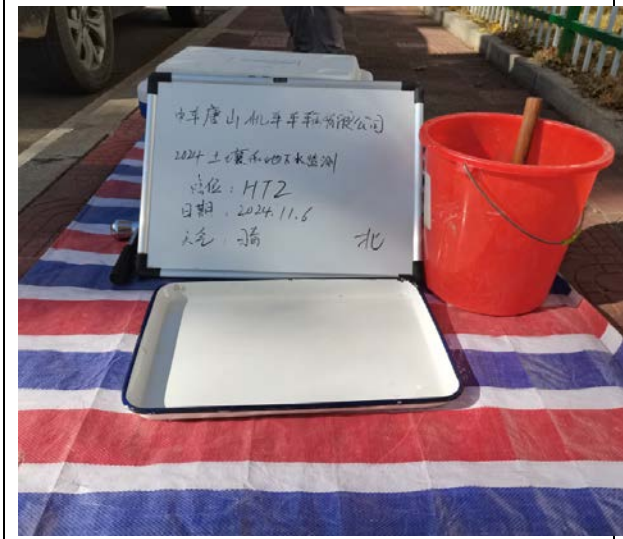 中车唐山机车车辆有限公司
2024土壤和地下水监测
点位：HTZ
日期：2024.11.6
天气：晴 北